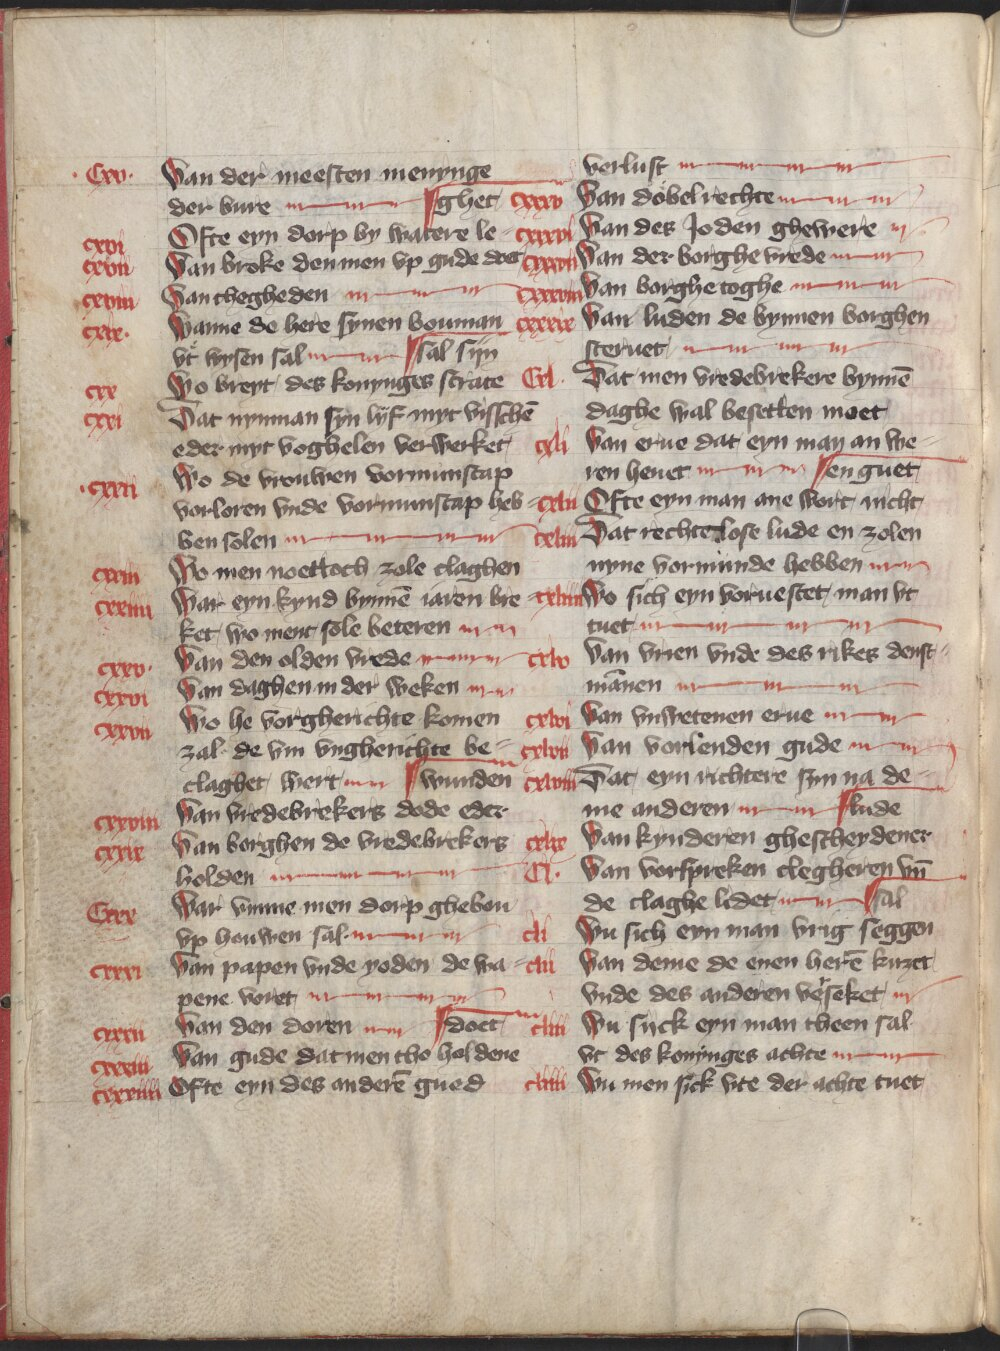 Cxv. Van der meesten menynge
der bure ghet
cxvi Ofte eyn dorp by watere le
cxvii Van broke den men vp gude doet
cxviii Van thegheden
cxix. Wanne de here synen bouman
vt wysen sal sal sijn
cxx Wo breyt des konynges strate
cxxi Dat nynman syn lijf myt visschē
eder myt voghelen verwerket
cxxii Wo de vrouwen vormunstap
vorloren vnde vormunstap heb
ben solen
cxxiii Wo men noettoch zole claghen
cxxiiii War eyn kynd bynnē iaren bre
ket wo ment sole beteren
cxxv. Van den olden vrede
cxxvi Van daghen in der weken
cxxvii Wo he vorgherichte komen
zal de vm vngherichte be
claghet wert wunden
cxxviii Van vredebrekers dode eder
cxxix Van borghen de vredebrekers
holden
Cxxx War vmme men dorp ghebou
vp houwen sal
cxxxi Van papen vnde yoden de wa
pene voret
cxxxii Van den doren doet
cxxxiii Van gude dat men tho holdene
cxxxiiii Ofte eyn des anderē gued
verlust
cxxxv Van dobel rechte
cxxxvi Van des Joden ghewere
cxxxvii Van der borghe vrede
cxxxviii Van borghe toghe
cxxxix Van luden de bynnen borghen
steruet
Cxl. Dat men vredebrekere bynnē
daghe wal besetten moet
cxli Van erue dat eyn man an we
ren heuet en guet
cxlii Ofte eyn man ane wort nicht
cxliii Dat rechtelose lude en zolen
nyne vormunde hebben
cxliiii Wo sich eyn voruestet man vt
tuet
cxlv Van vrien vnde des rikes denst
mānen
cxlvi Van vnwetenen erue
cxlvii Van vorlenden gude
cxlviii Dat eyn richtere syn na de
me anderen lude
cxlix Van kynderen ghescheydener
Cl. Van vorspreken clegheren vn̄
de claghe lidet sal
cli Wu sich eyn man vrig seggen
clii Van deme de enen herē kuzet
vnde des anderen vēseket
cliii Wu sijck eyn man theen sal
vt des konynges achte
cliiii Wu men sick vte der achte tuet